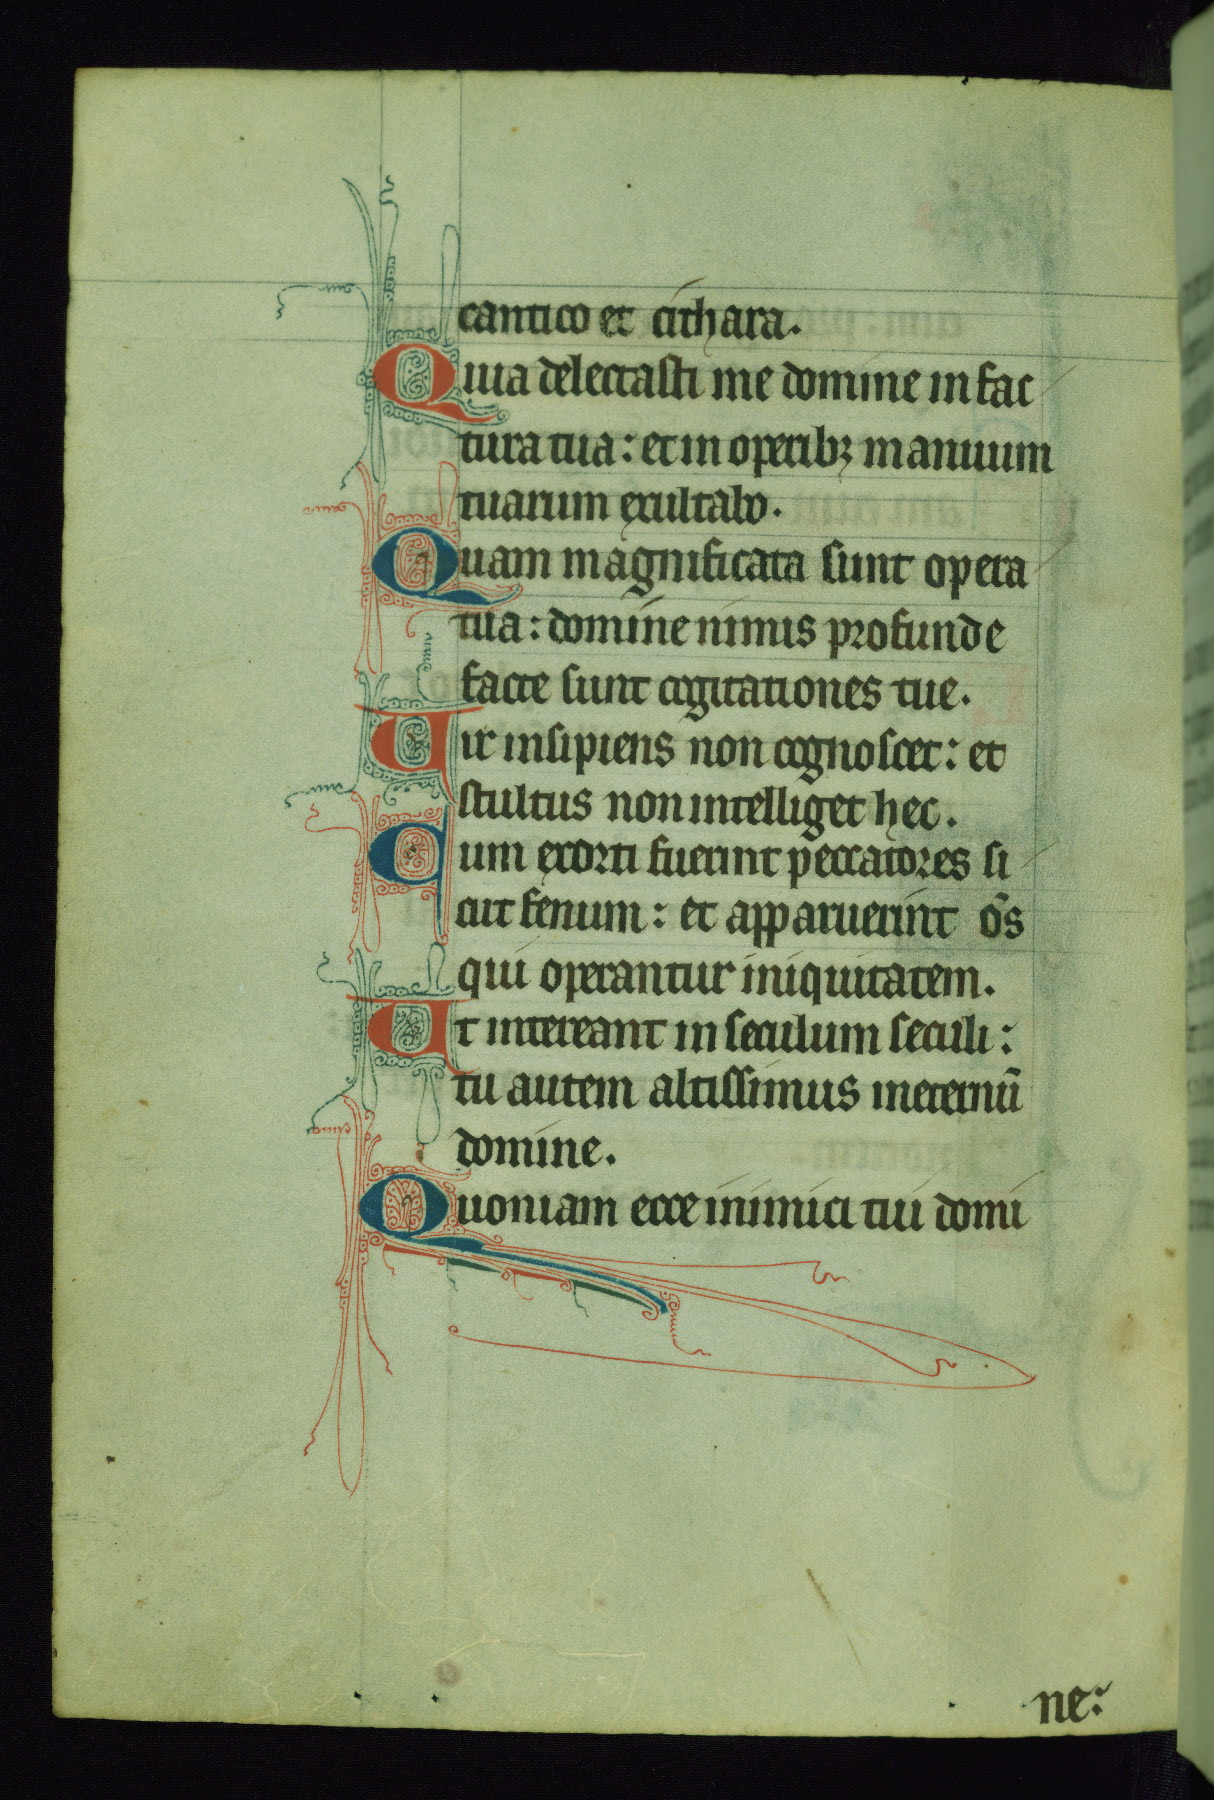 cantico et cithara.
Quia delectasti me domine in fac
tura tua: et in operibꝫ manuum
tuarum exultabo.
Quam magnificata sunt opera
tua: domine nimis profunde
facte sunt cogitationes tue.
Uir insipiens non cognoscet: et
stultus non intelliget hec.
Cum exorti fuerint peccatores si
cut fenum: et apparuerint om̅s
qui operantur iniquitatem.
Ut intereant in seculum seculi:
tu autem altissimus ineternū
domine.
Quoniam ecce inimici tui domi
ne: